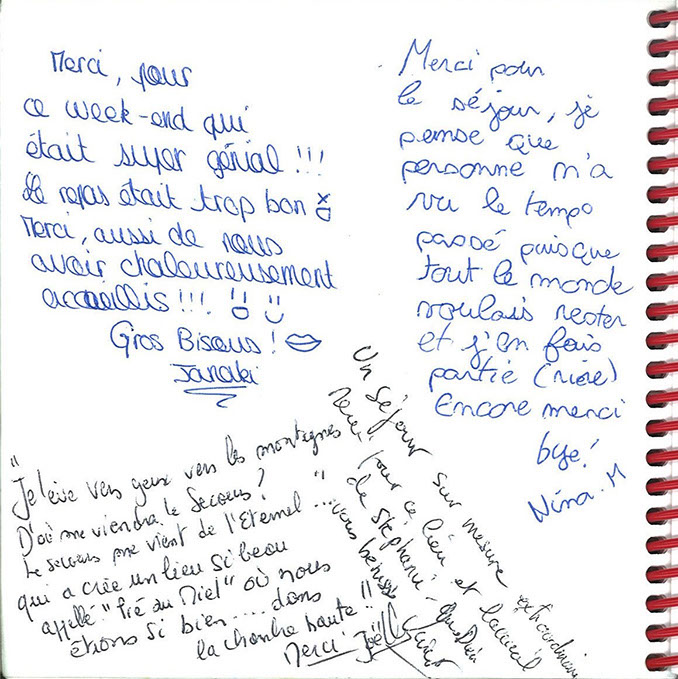 Merci, pour
ce week-end qui
était super génial !!!
Le repas était trop bon
Merci, aussi de nous
avoir chaleureusement
accueillis !!!
Gros Bisous !
Janaki
Merci pour
le séjour, je
pense que
personne n'a
vu le temps
passé puisque
tout le monde
voulais rester
et j'en fais
partie (rire)
Encore merci
bye!
Nina. M
"Je lève vers yeux vers les montagnes
D'où me viendra le Secours?
Le secours me vient de l'Eternel ... "
qui a crée un lieu si beau
appellé "Pré au Miel" où nous
étions si bien .... dans
la chambre haute !!
Merci Joëlle
Un séjour sur mesure extraordinaire
Merci pour ce lieu et l'accueil
de Stéphanie. Que Dieu
vous bénisse